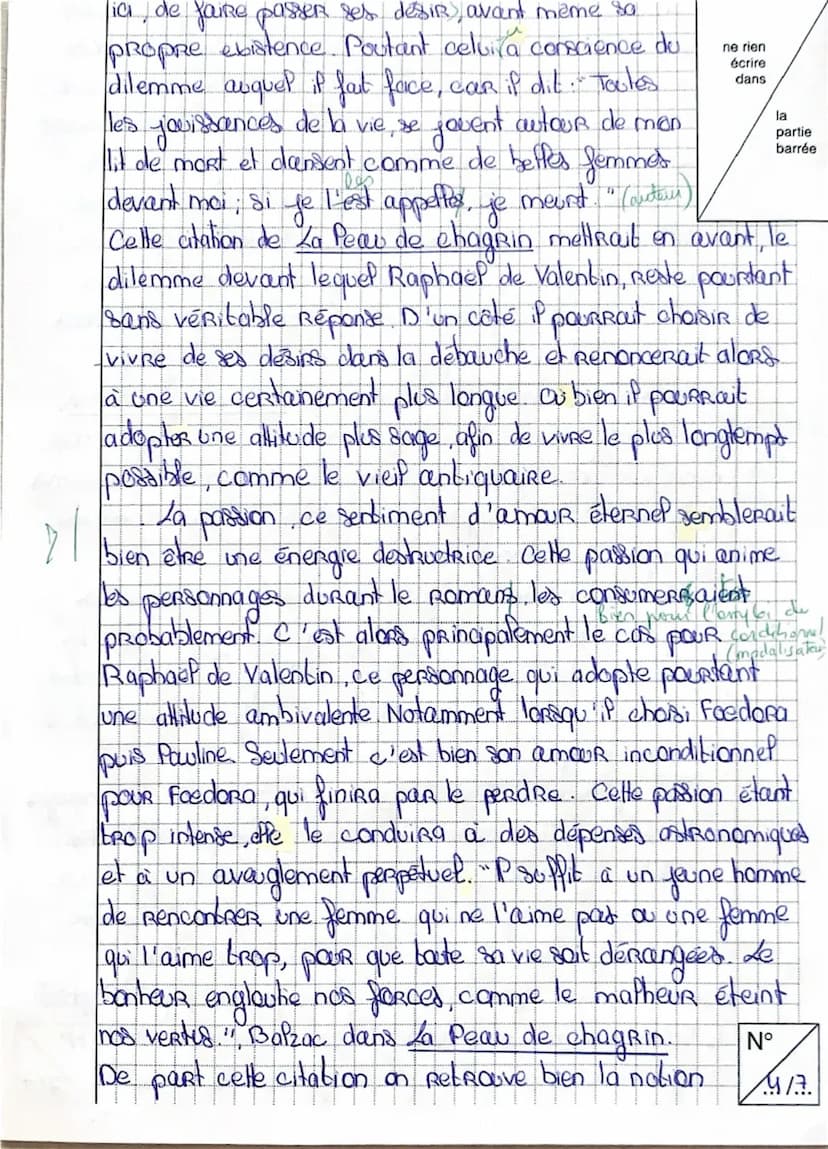 ici, de faire passer ses désirs, avant même sa
propre existence. Poutant celui à conscience du
dilemme auquel il fait face, car il dit : " Toutes
les jouissances de la vie, se jouent autour de mon
lit de mort et dansent comme de belles femmes
devant moi ; si je l'est appelles, je meurt. " (auteur)
les
Cette citation de La Peau de chagrin mettrait en avant, le
dilemme devant lequel Raphaël de Valentin, reste pourtant
sans véritable réponse. D'un côté il pourrait choisir de
vivre de ses désirs dans la débauche et renoncerait alors
à une vie certainement plus longue. Où bien il pourrait
adopter une attitude plus sage, afin de vivre le plus longtempt
possible, comme le vieil antiquaire.
La passion, ce sentiment d'amour éternel semblerait
bien être une énergie destructrice. Cette passion qui anime
les personnages durant le romans, les consumerait
probablement. C'est alors principalement le cas pour
Bien pour l'emploi du
conditionnel
(modalisateur)
Raphaël de Valentin, ce personnage qui adopte pourtant
une attitude ambivalente. Notamment lorsqu'il choisi Foedora
puis Pauline. Seulement c'est bien son amour inconditionnel
pour Foedora, qui finira par le perdre. Cette passion étant
trop intense, elle le conduira à des dépenses astronomiques
et à un aveuglement perpétuel. "Il suffit à un jeune homme
de rencontrer une femme qui ne l'aime pas ou une femme
qui l'aime trop, pour que toute sa vie soit dérangées. Le
bonheur engloutie nos forces, comme le malheur éteint
nos vertus.", Balzac dans La Peau de chagrin.
De part cette citation on retrouve bien la notion
ne rien
écrire
dans
la
partie
barrée
N°
4/7